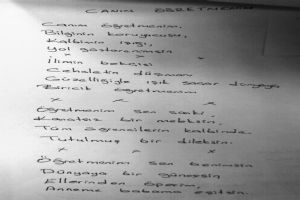 CANIM ÖĞRETMENİM
Canım öğretmenim,
Bilginin koruyucusu,
Kalbimin ışığı,
Yol gösterenimsin
x x x
İlmin bekçisi
Cehaletin düşmanı
Güzelliğiyle ışık saçar dünyaya
Biricik öğretmenim
x x x
Öğretmenim sen sanki,
Kanatsız bir meleksin,
Tüm öğrencilerin kalbinde
Tutulmuş bir dileksin.
x x x
Öğretmenim sen benimsin
Dünyaya bir güneşsin
Ellerinden öperim,
Anneme babama eşitsin.